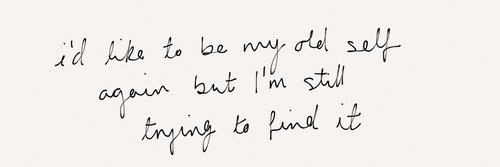 i'd like to be my old self
again but I'm still
trying to find it